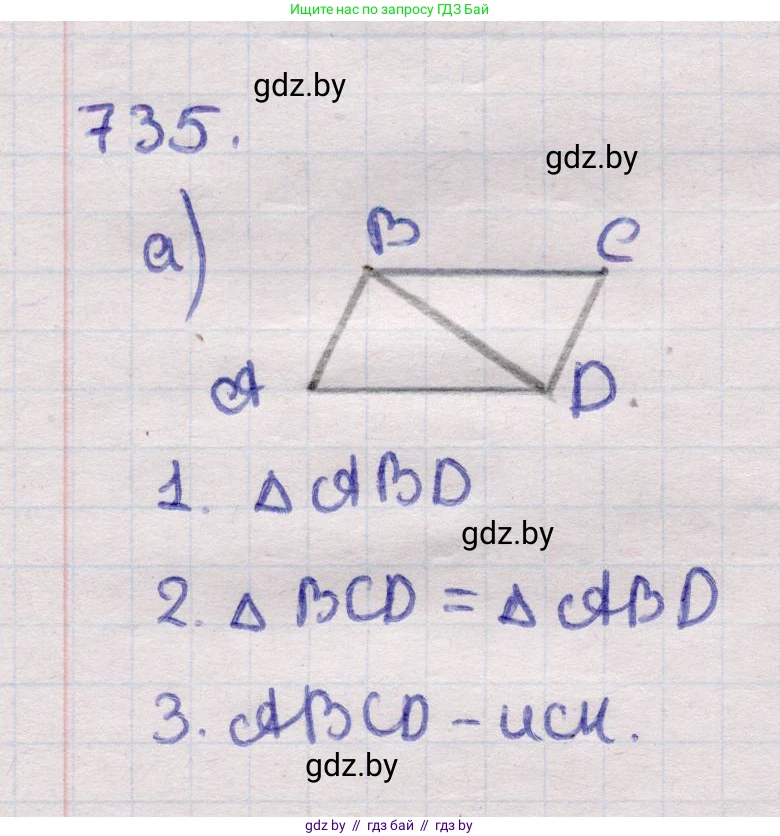 Ищите нас по запросу ГДЗ Бай
gdz.by
735.
gdz.by
а)
B C
A D
1. △ ABD
gdz.by
2. △ BCD = △ ABD
3. ABCD - иск.
gdz.by
gdz.by // гдз бай // gdz.by